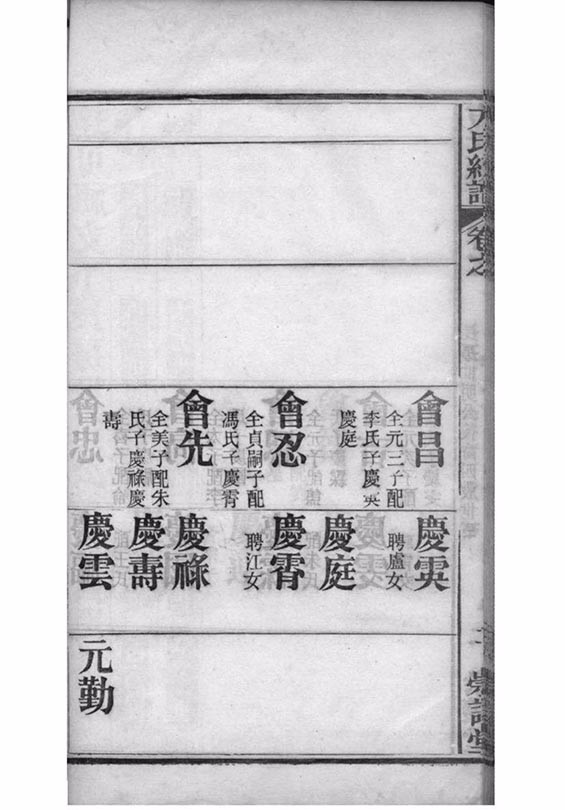 氏經譜 卷之
會昌
全元三子配
李氏子慶霙
慶庭
會忍
全貞嗣子配
馮氏子慶霄
會先
全美子配朱
氏子慶祿慶
壽
慶霙
聘盧女
慶庭
慶霄
聘江女
慶祿
慶壽
慶雲
元勤